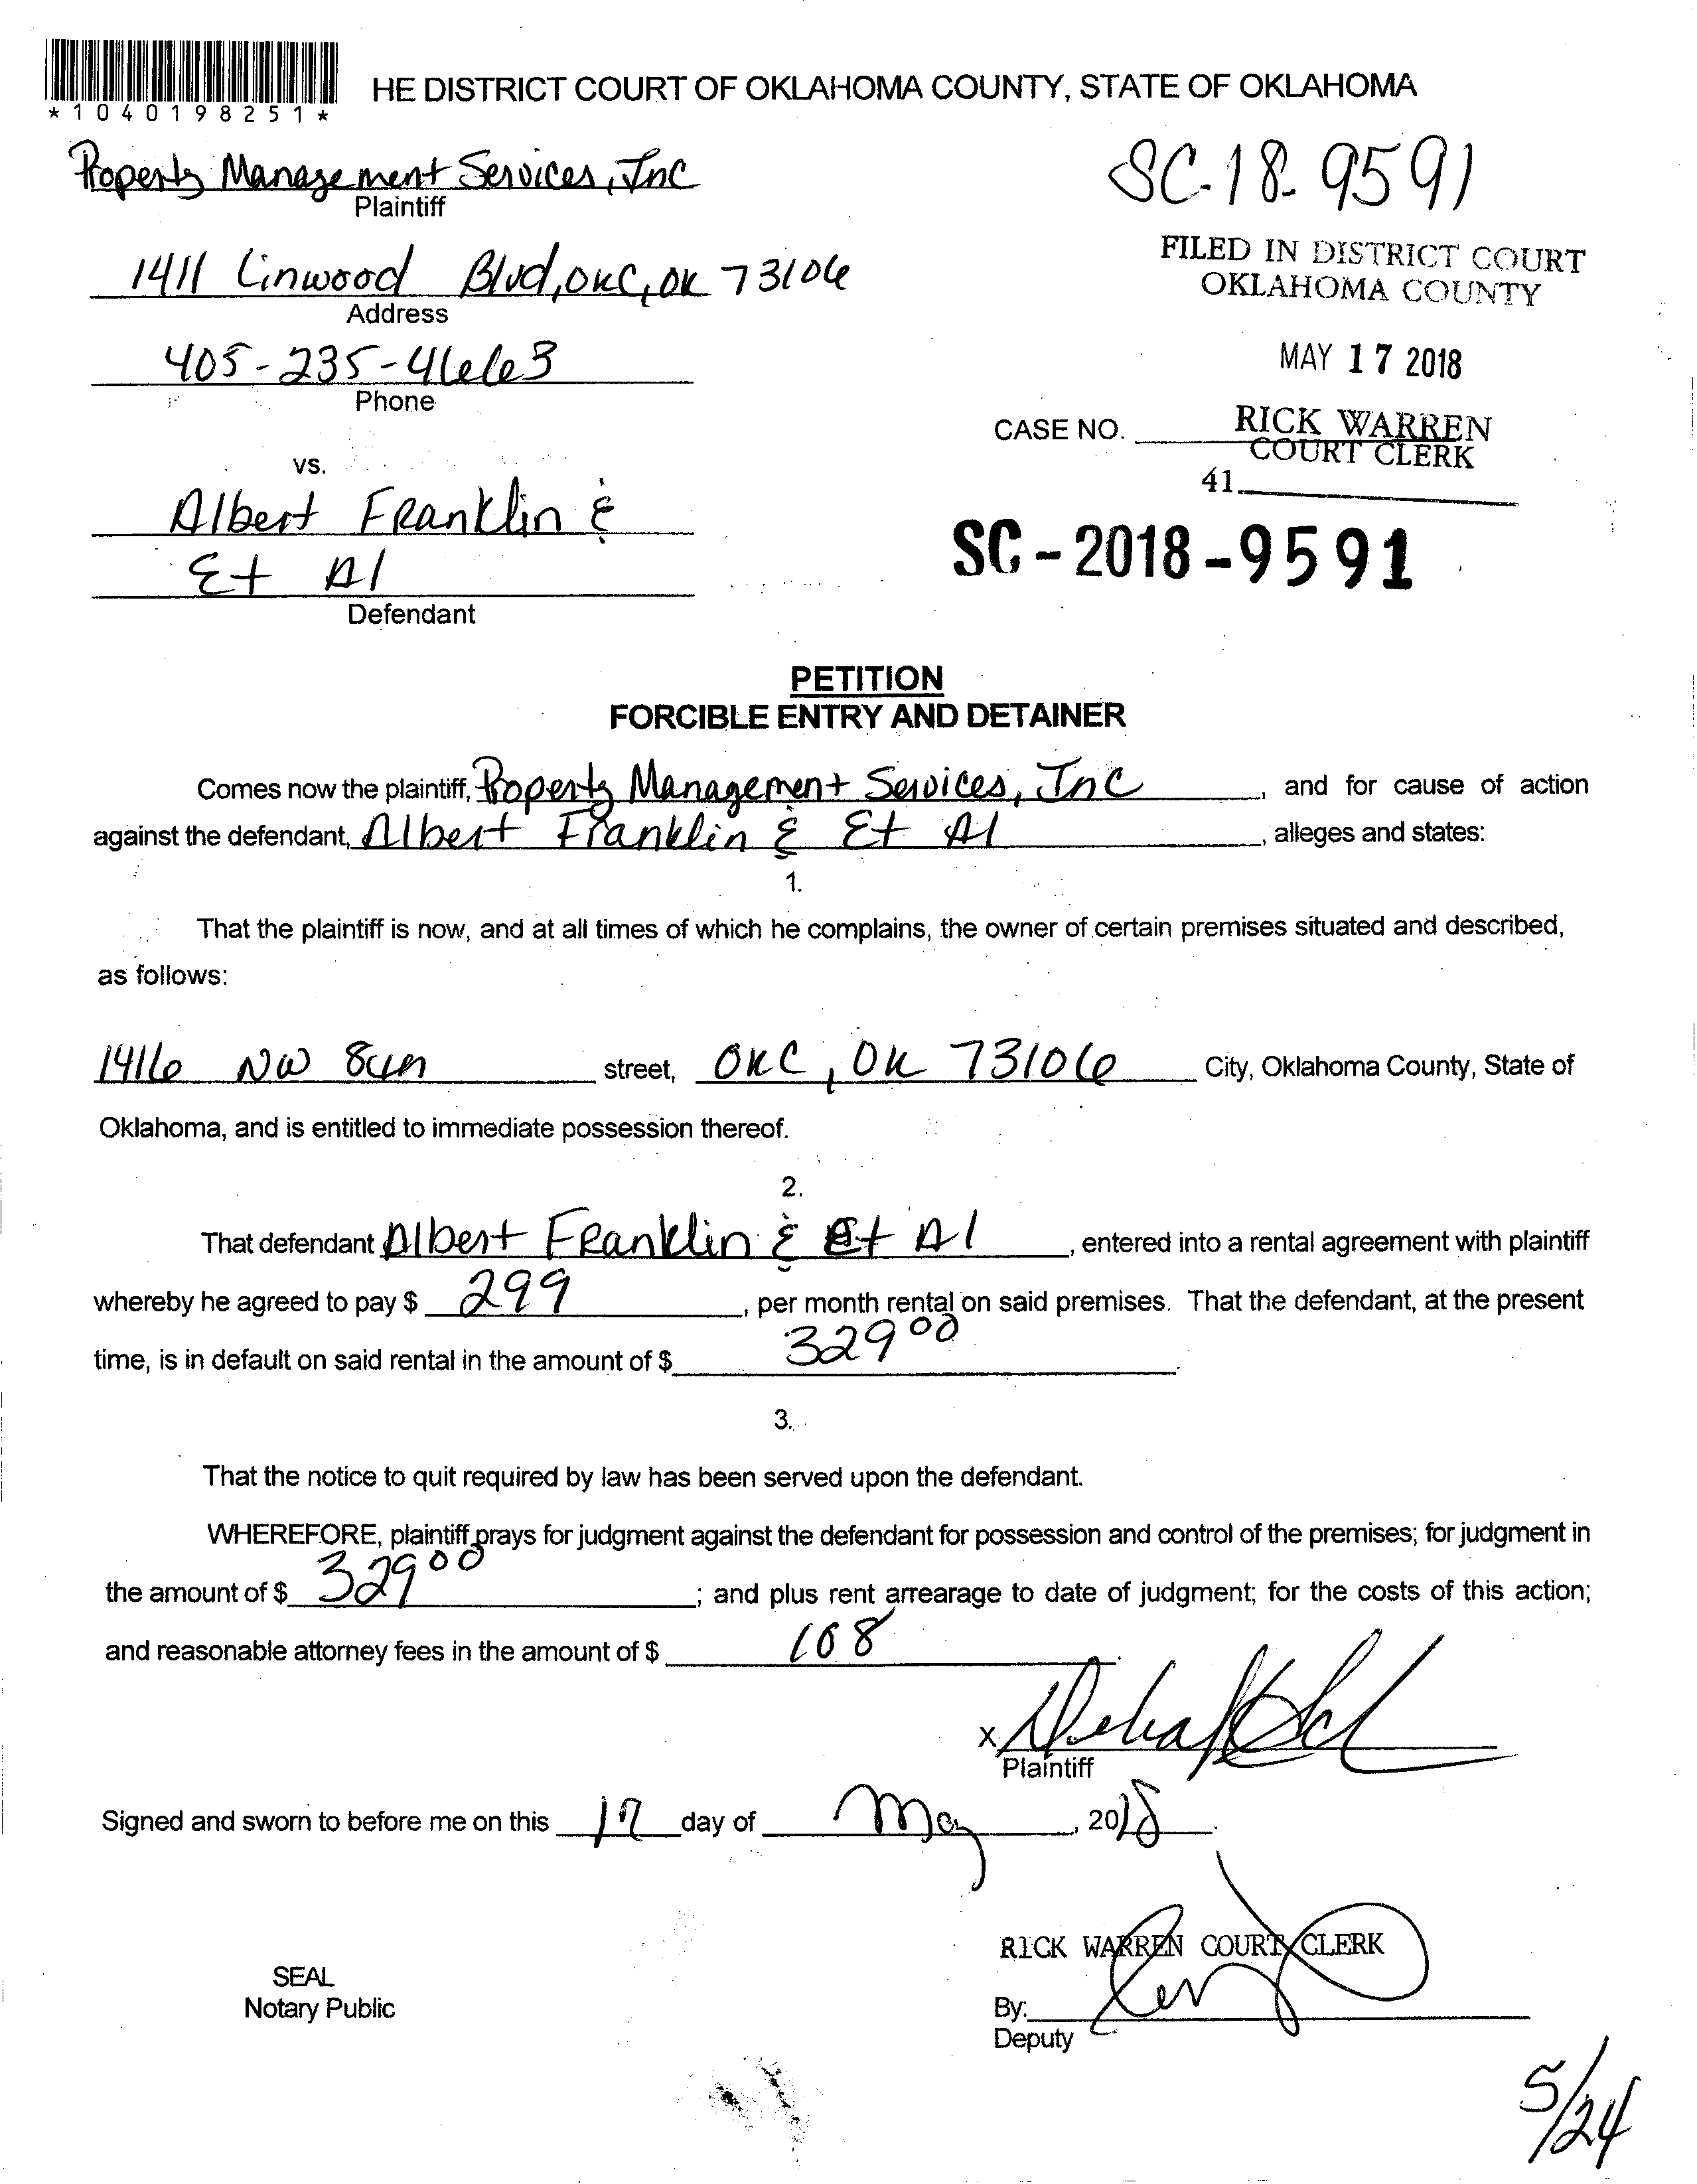 *1040198251*
HE DISTRICT COURT OF OKLAHOMA COUNTY, STATE OF OKLAHOMA
Property Management Services, Inc
Plaintiff
SC-18-9591
1411 Linwood Blvd, OKC, OK 73106
Address
FILED IN DISTRICT COURT
OKLAHOMA COUNTY
405-235-4663
Phone
MAY 17 2018
CASE NO.
RICK WARREN
COURT CLERK
41
vs.
Albert Franklin &
Et Al
Defendant
SC-2018-9591
PETITION
FORCIBLE ENTRY AND DETAINER
Comes now the plaintiff, Property Management Services, Inc, and for cause of action
against the defendant, Albert Franklin & Et Al, alleges and states:
1.
That the plaintiff is now, and at all times of which he complains, the owner of certain premises situated and described,
as follows:
1416 NW 8th street, OKC, OK 73106 City, Oklahoma County, State of
Oklahoma, and is entitled to immediate possession thereof.
2.
That defendant Albert Franklin & Et Al, entered into a rental agreement with plaintiff
whereby he agreed to pay $ 299, per month rental on said premises. That the defendant, at the present
time, is in default on said rental in the amount of $ 329 00.
3.
That the notice to quit required by law has been served upon the defendant.
WHEREFORE, plaintiff prays for judgment against the defendant for possession and control of the premises; for judgment in
the amount of $ 329 00; and plus rent arrearage to date of judgment; for the costs of this action;
and reasonable attorney fees in the amount of $ 108.
X
Plaintiff
Signed and sworn to before me on this 17 day of May, 2018.
RICK WARREN COURT CLERK
SEAL
Notary Public
By:
Deputy
5/24